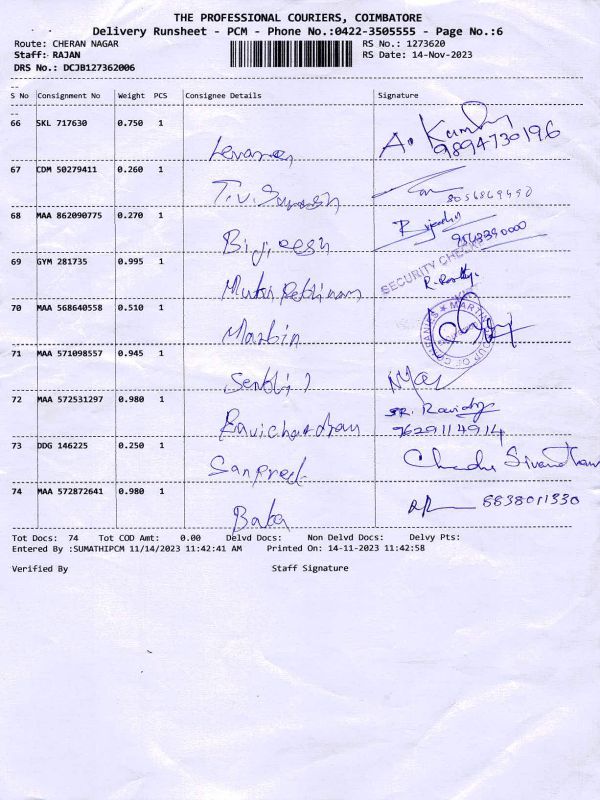 THE PROFESSIONAL COURIERS, COIMBATORE
Delivery Runsheet - PCM - Phone No.:0422-3505555 - Page No.:6
Route: CHERAN NAGAR RS No.: 1273620
Staff: RAJAN RS Date: 14-Nov-2023
DRS No.: DCJB127362006
S No Consignment No Weight PCS Consignee Details Signature
66 SKL 717630 0.750 1
9894730196
67 CDM 50279411 0.260 1
T.V. Suresh
68 MAA 862090775 0.270 1
69 GYM 281735 0.995 1
SECURITY CHECK
70 MAA 568640558 0.510 1
Martin
71 MAA 571098557 0.945 1
72 MAA 572531297 0.980 1
Ravichandran
7629114914
73 DDG 146225 0.250 1
74 MAA 572872641 0.980 1
8838011330
Baba
Tot Docs: 74 Tot COD Amt: 0.00 Delvd Docs: Non Delvd Docs: Delvy Pts:
Entered By :SUMATHIPCM 11/14/2023 11:42:41 AM Printed On: 14-11-2023 11:42:58
Verified By Staff Signature